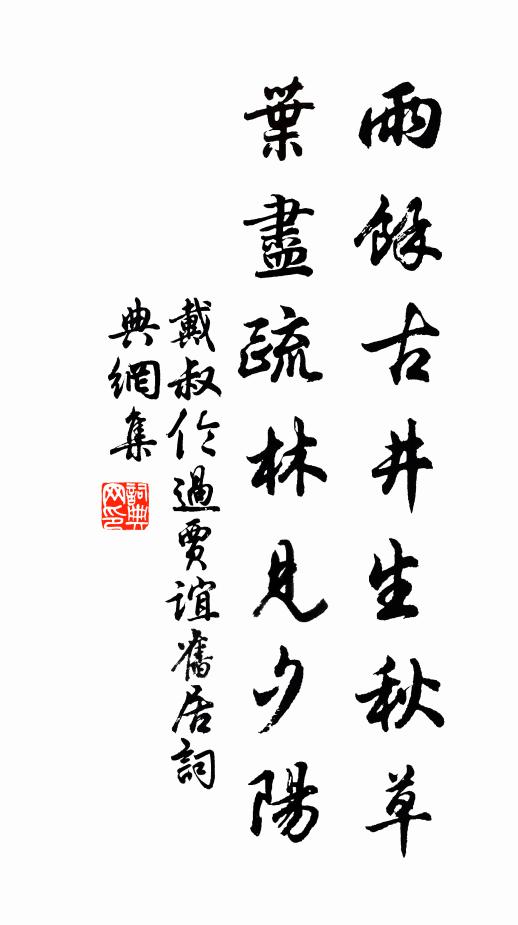 雨餘古井生秋草
葉盡疏林見夕陽
戴叔伦過賈誼舊居詞
典網集
詞典网印